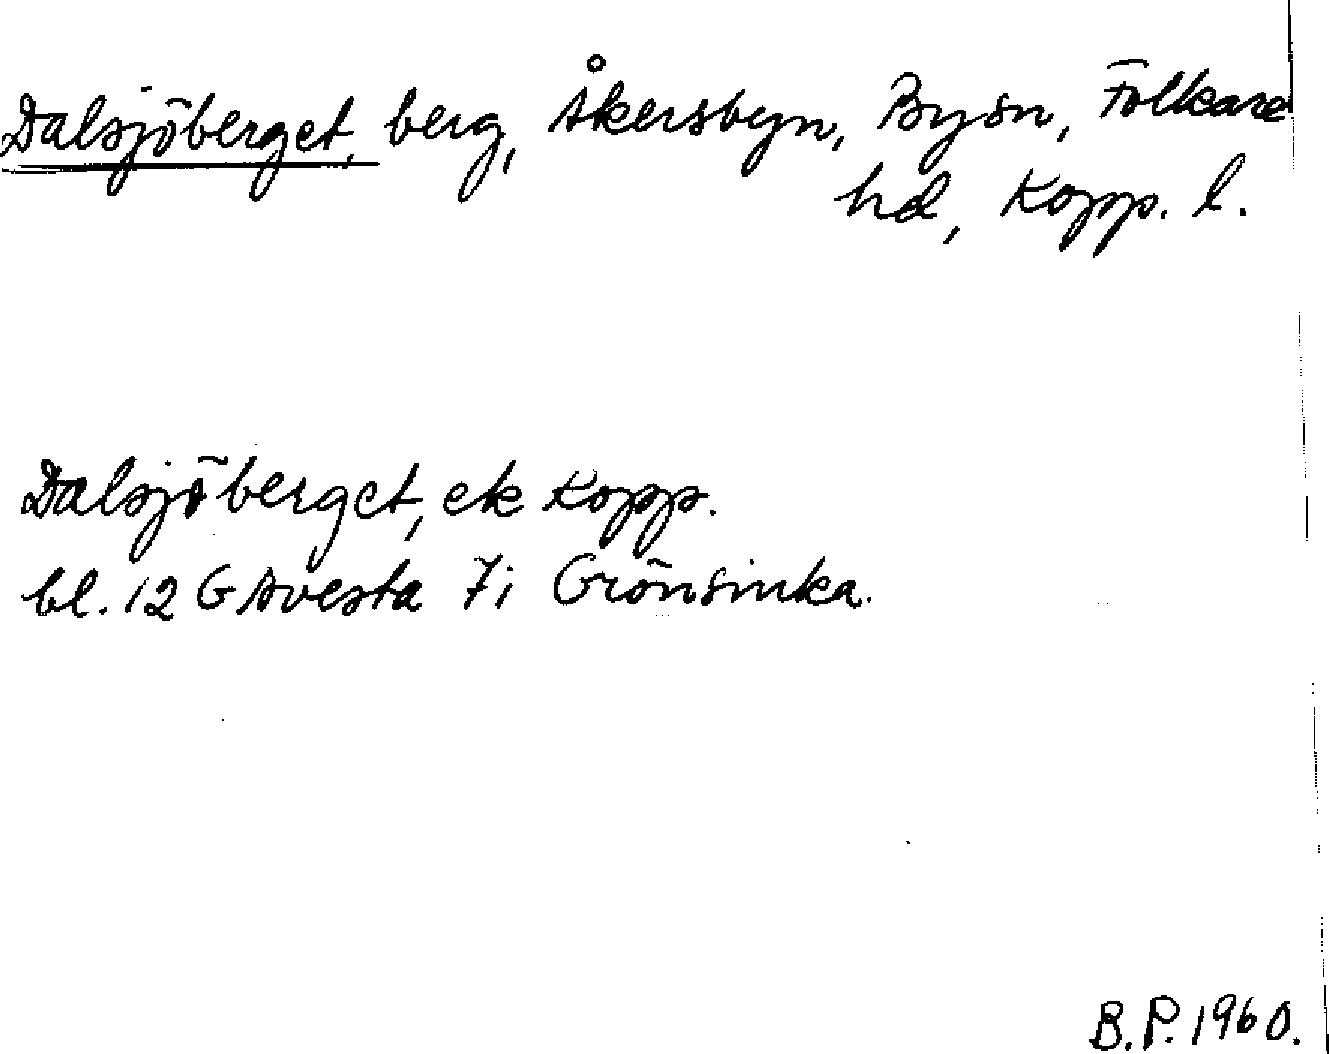 Dalsjöberget, berg, Åkersbyn, By sn, Folkare
hd, Kopp. l.
Dalsjöberget, ek Kopp.
bl. 12 G Avesta 7i Grönsinka.
B.P. 1960.